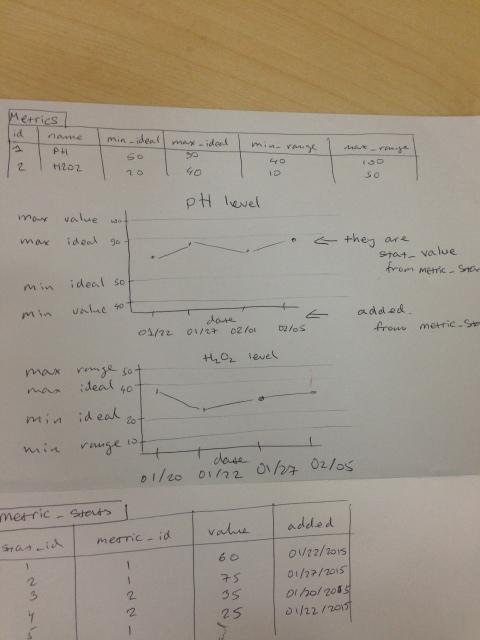 Metrics
id name min_ideal max_ideal min_range max_range
1 PH 50 90 40 100
2 H2O2 20 40 10 50
pH level
max value 100
max ideal 90
min ideal 50
min value 40
← they are
stat_value
from metric_sta
← added
from metric_sta
date
01/22 01/27 02/01 02/05
H2O2 level
max range 50
max ideal 40
min ideal 20
min range 10
date
01/20 01/22 01/27 02/05
metric_stats
stat_id metric_id value added
1 1 60 01/22/2015
2 1 75 01/27/2015
3 2 35 01/20/2015
4 2 25 01/22/2015
5 1